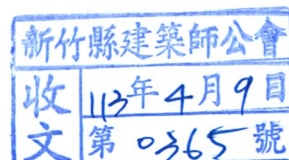 新竹縣建築師公會
收文
113年4月9日
第0365號